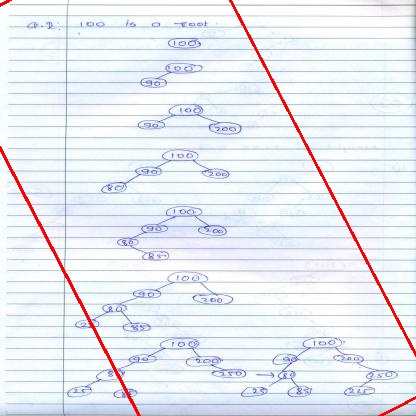 100 is a root.
100
100
90
100
90 200
100
90 200
80
100
90 200
80
85
100
90 200
80
25 85
100 100
90 200 90 200
250 80 250
25 25 85 225